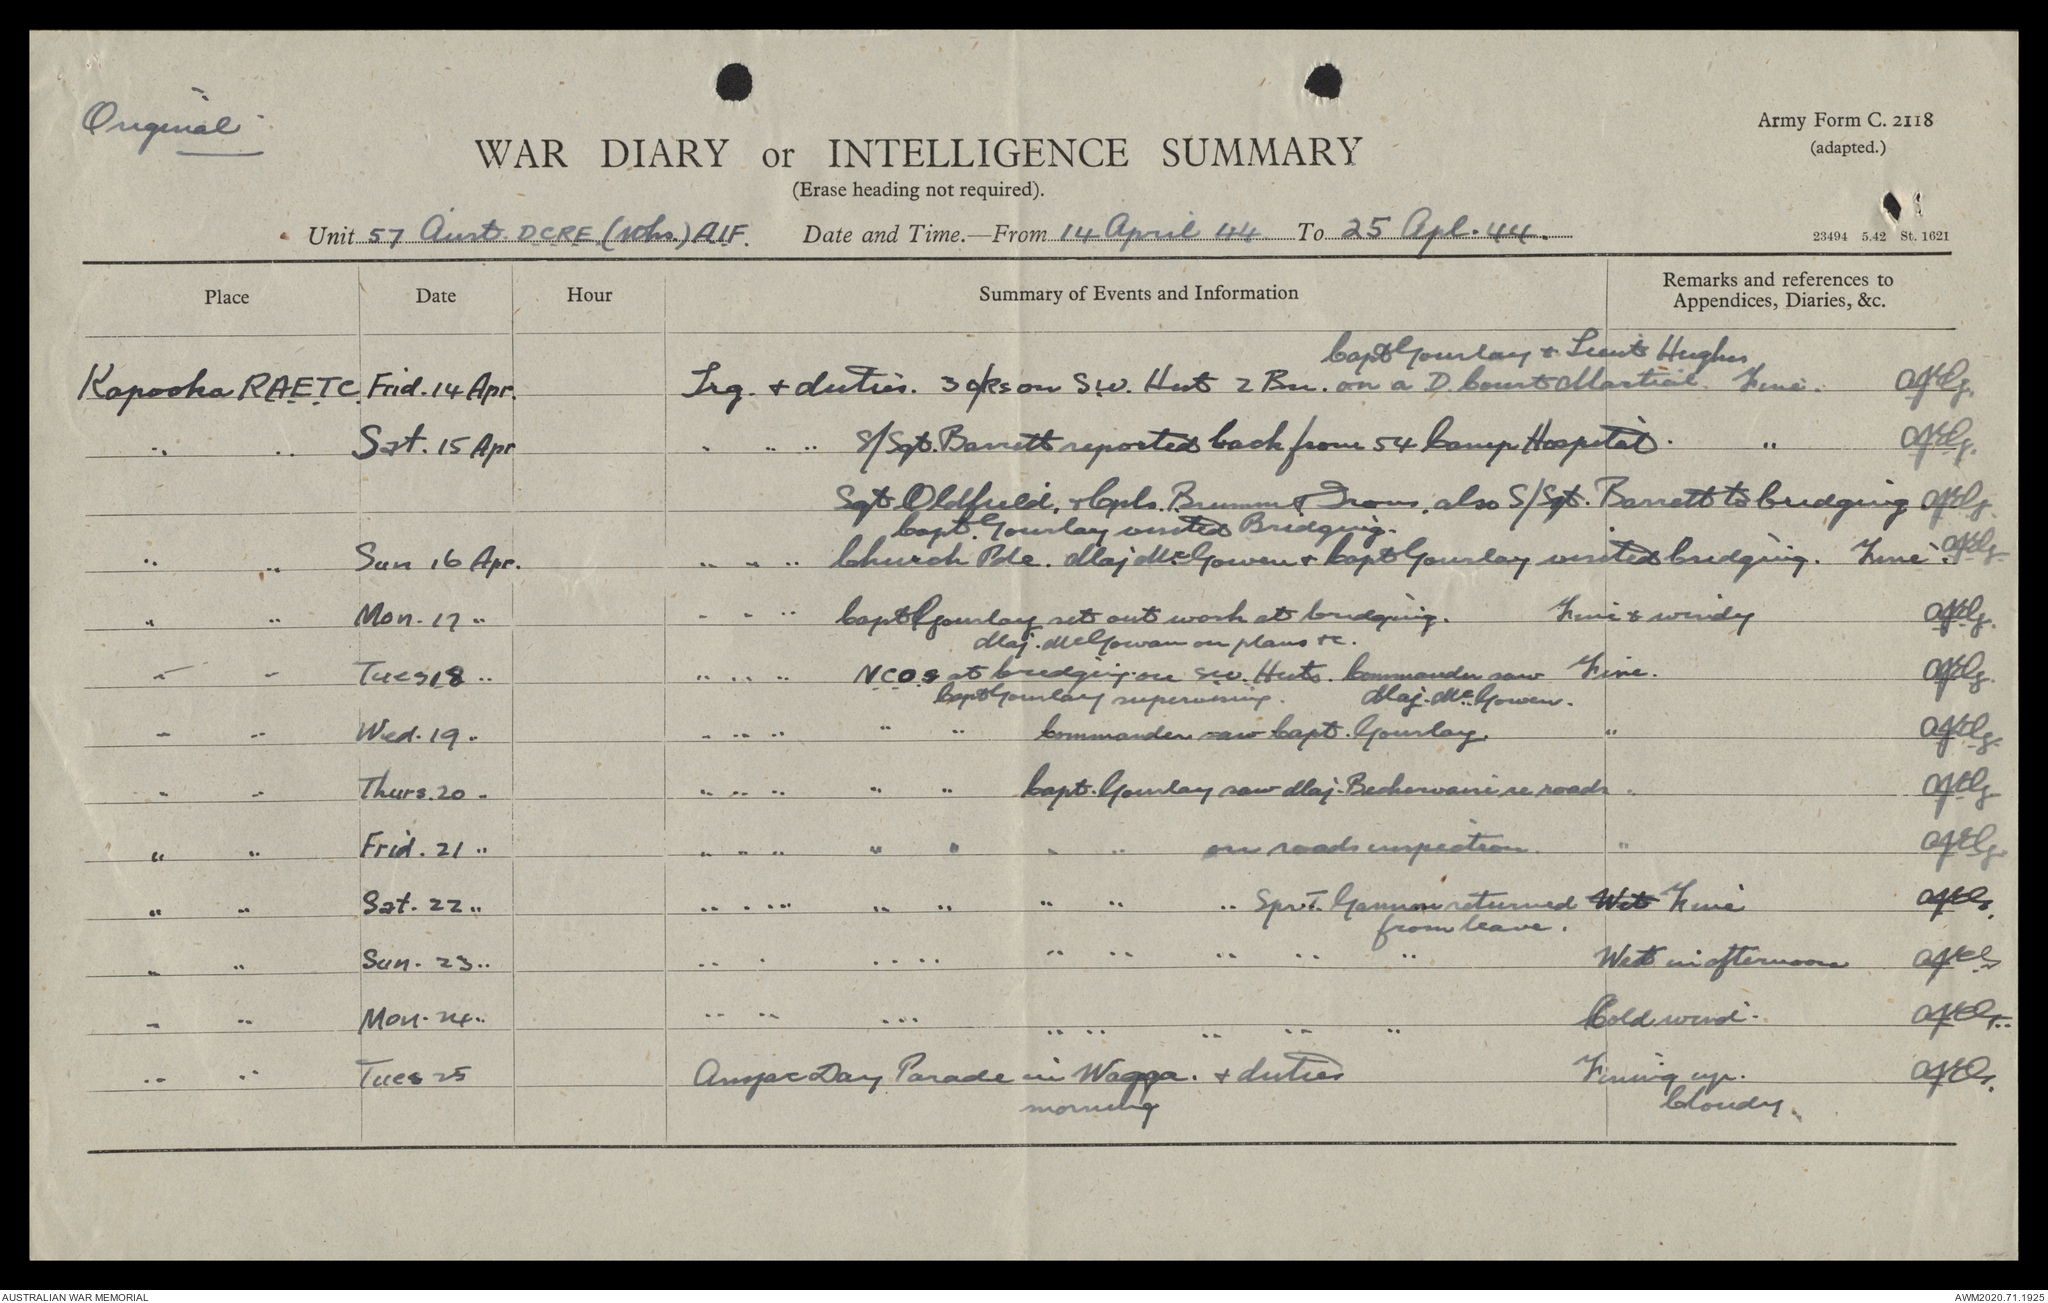 Original
Army Form C. 2118
(adapted.)
WAR DIARY or INTELLIGENCE SUMMARY
(Erase heading not required).
Unit 57 Aust. DCRE (Wks.) AIF. Date and Time.—From 14 April 44 To 25 Apl. 44.
23494 5.42 St. 1621
Place Date Hour Summary of Events and Information Remarks and references to
Appendices, Diaries, &c.
Capt Gourlay & Lieut Hughes
Kapooka RAETC Frid. 14 Apr. Trg. & duties. 3 o/Rs on S.W. Hut 2 Bn. on a D. Court Martial. Fine.
" " Sat. 15 Apr " " " S/Sgt. Barrett reported back from 54 Camp Hospital. "
Sgt Oldfield, & Cpls. Brumm & Irons, also S/Sgt. Barrett to bridging
Capt. Gourlay visited Bridging.
" " Sun 16 Apr. " " " Church Pde. Maj McGowen & Capt Gourlay visited bridging. Fine.
" " Mon. 17 " " " " Capt Gourlay set out work at bridging. Fine & windy
Maj. McGowan on plans &c.
" " Tues 18 " " " " NCOs at bridging on SW. Huts. Commander saw Fine.
Capt Gourlay supervising. Maj. McGowen.
" " Wed. 19 " " " " " " Commander saw Capt. Gourlay. "
" " Thurs. 20 " " " " " " Capt. Gourlay saw Maj. re roads "
" " Frid. 21 " " " " " " " " on roads inspection. "
" " Sat. 22 " " " " " " " " " Spr. T. Gannon returned Wet Fine
from leave.
" " Sun. 23 " " " " " " " " " " " Wet in afternoon
" " Mon. 24 " " " " " " " " " Cold wind.
" " Tues 25 Anzac Day Parade in Wagga. & duties Fining up.
morning Cloudy.
AUSTRALIAN WAR MEMORIAL AWM2020.71.1925